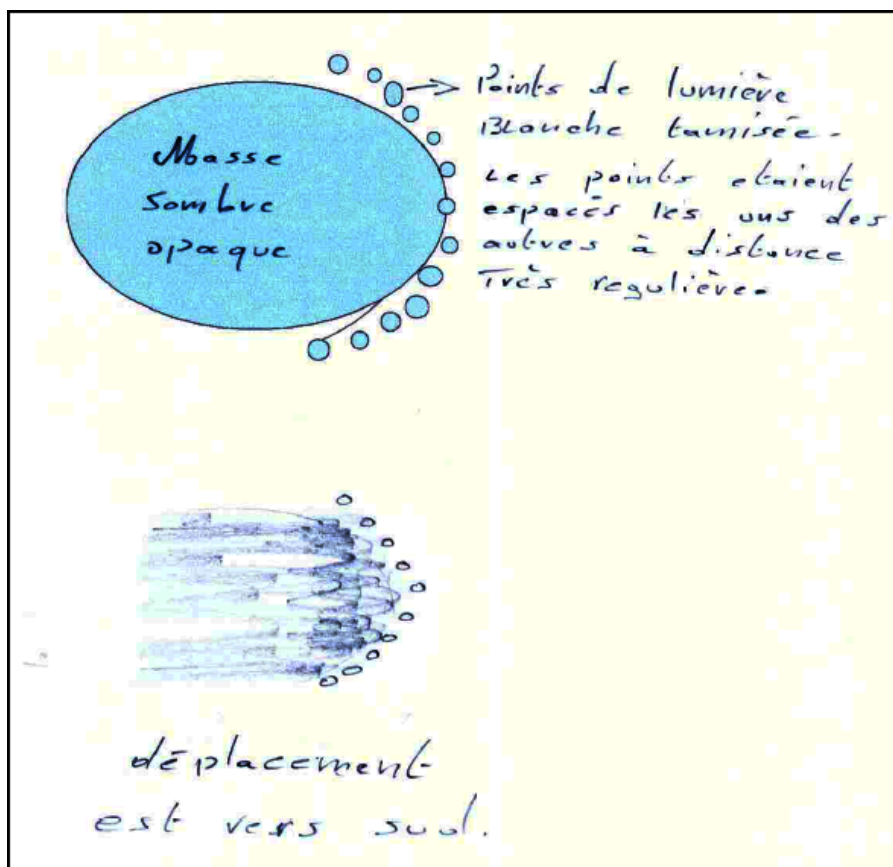 Masse
sombre
opaque
Points de lumière
Blanche tamisée.
Les points etaient
espacés les uns des
autres à distance
Très regulière.
déplacement
est vers sud.